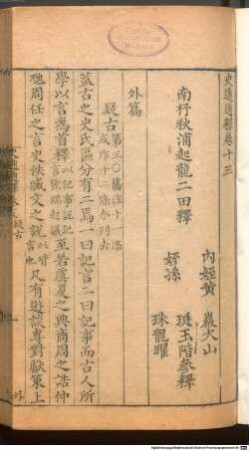 史通通釋卷十三
內姪黃 巖大山
南杼秋浦起龍二田釋 瑗玉階參釋
姪孫 珠龍曜
外篇
疑古 第三○舊作十一條或作十二條今列去
蓋古之史氏區分有二焉一曰記言二曰記事而古人所
學以言為首 至若虞夏之典商周之誥仲
虺周任之言史佚臧文之說 凡有遊談專對獻策上
外